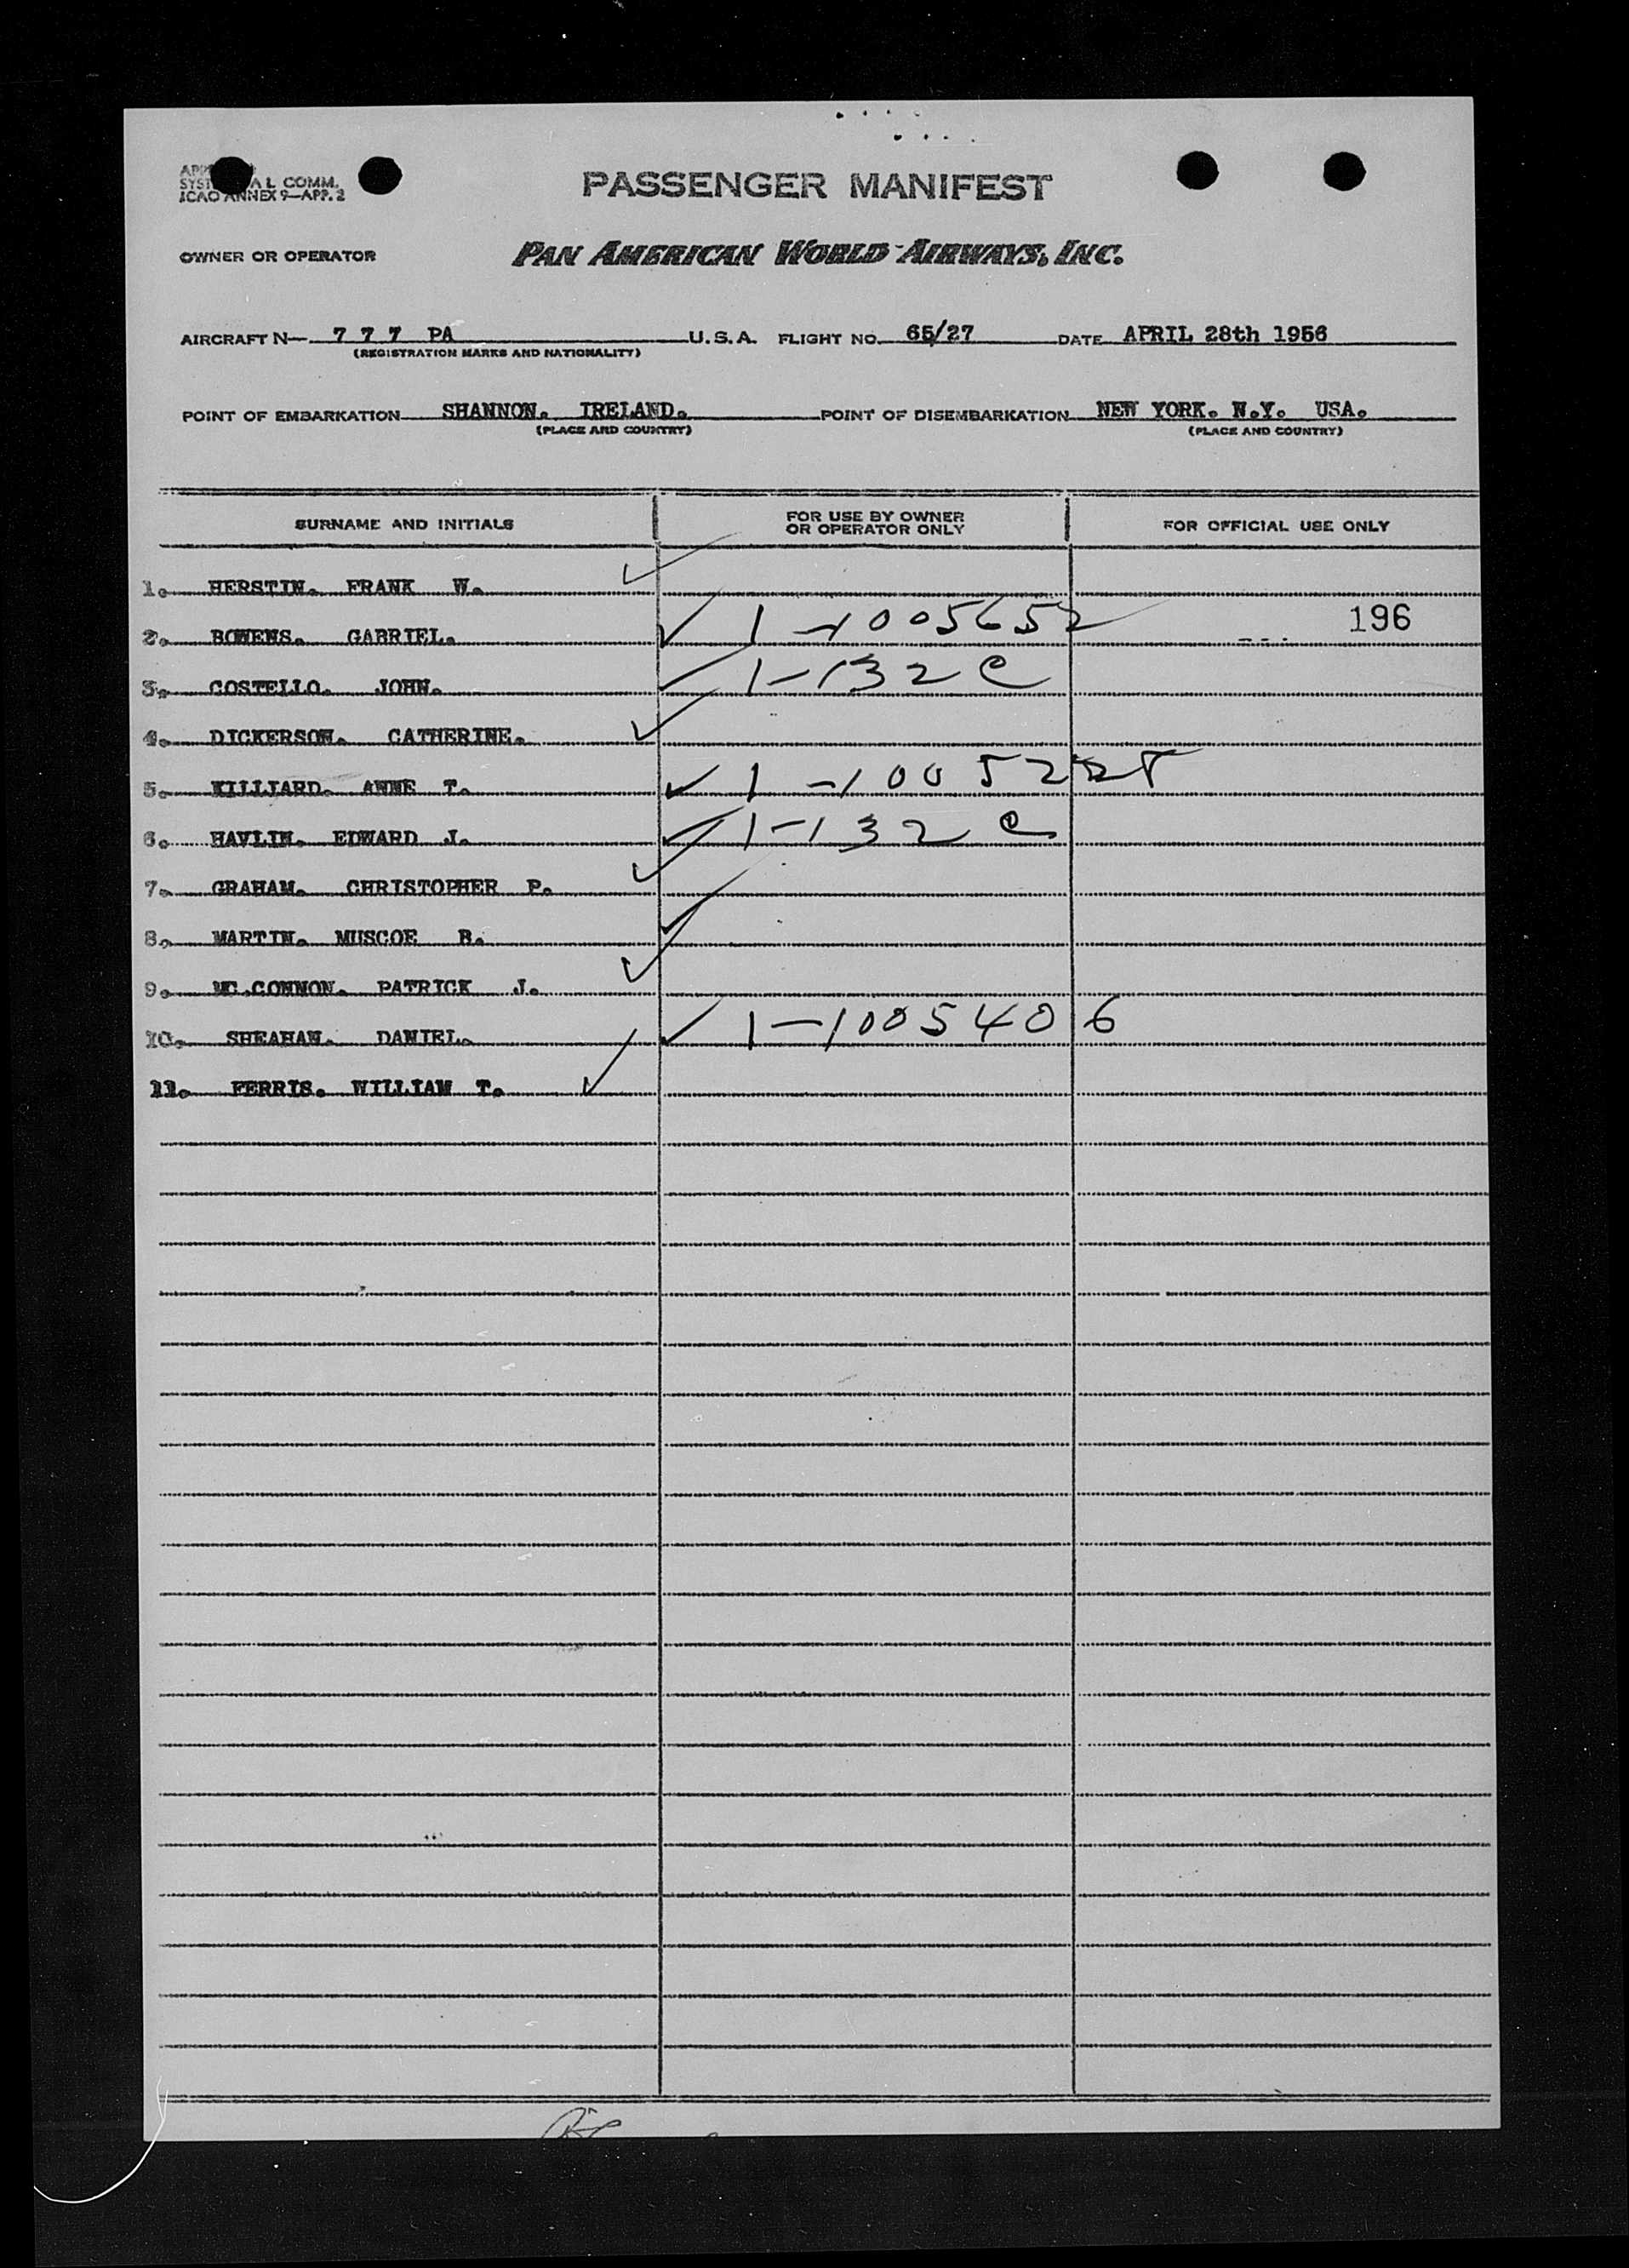 SYST AL COMM.
ICAO ANNEX 9—APP. 2
PASSENGER MANIFEST
OWNER OR OPERATOR PAN AMERICAN WORLD AIRWAYS, INC.
AIRCRAFT N— 7 7 7 PA U.S.A. FLIGHT NO. 65/27 DATE APRIL 28th 1956
(REGISTRATION MARKS AND NATIONALITY)
POINT OF EMBARKATION SHANNON. IRELAND. POINT OF DISEMBARKATION NEW YORK. N.Y. USA.
(PLACE AND COUNTRY) (PLACE AND COUNTRY)
SURNAME AND INITIALS FOR USE BY OWNER OR OPERATOR ONLY FOR OFFICIAL USE ONLY
1. HERSTIN. FRANK W.
2. BOWENS. GABRIEL. 1-1005652 196
3. COSTELLO. JOHN. 1-132 C
4. DICKERSON. CATHERINE.
5. WILLIARD. ANNE T. 1-10052
6. HAVLIN. EDWARD J. 1-132 C
7. GRAHAM. CHRISTOPHER P.
8. MARTIN. MUSCOE B.
9. MC.CONNON. PATRICK J.
10. SHEAHAN. DANIEL. 1-1005406
11. FERRIS. WILLIAM T.